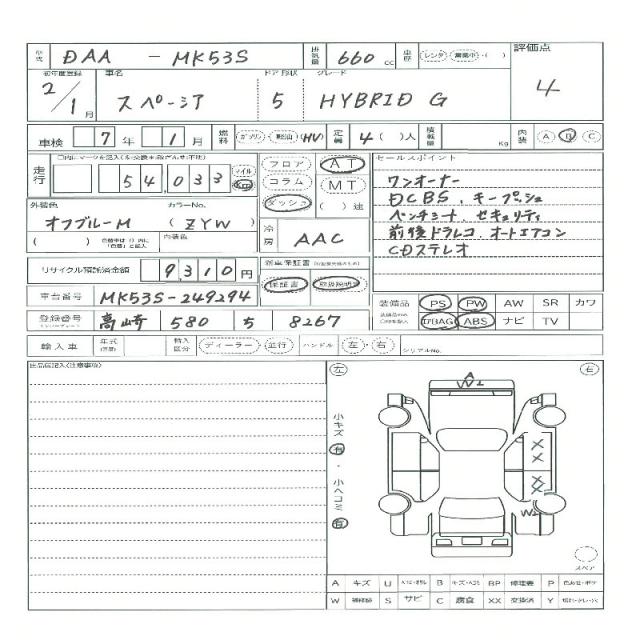 型式 DAA - MK53S 排気量 660 cc 車歴 レンタ・営業中・( ) 評価点
初年度登録 車名 ドア 形状 グレード
2/1月 スペーシア 5 HYBRID G 4
車検 7年 1月 燃料 ガソリン・軽油・(HV) 定員 4( )人 積載量 Kg 内装 A B C
走行 54,033 マイル Km
フロア AT
コラム MT
ダッシュ ( )速
外装色 カラーNo.
オフブルーM (ZYW)
内装色
冷房 AAC
セールスポイント
ワンオーナー
DCBS、キープッシュ
ベンチシート、セキュリティ
前後ドラレコ、オートエアコン
CDステレオ
リサイクル預託済金額 9310円
新車保証書
保証書 取扱説明書
車台番号 MK53S-249294
登録番号 高崎 580 5 8267
装備品 PS PW AW SR カワ
ABS ナビ TV
輸入車 年式 輸入区分 ディーラー・並行 ハンドル 左・右 シリアルNo.
出品店記入(注意事項)
左 右
A
W2
小キズ 有・小ヘコミ 有
X
X
X
X
W2
スペア
A キズ U B キズ・ BP 修理要 P
W S サビ C 腐食 XX 交換済 Y